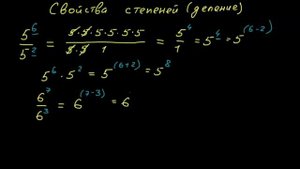 Свойства степеней (деление)
5⁶/5² = 5·5·5·5·5·5/5·5 1 = 5⁴/1 = 5⁴ = 5⁽⁶⁻²⁾
5⁶·5² = 5⁽⁶⁺²⁾ = 5⁸
6⁷/6³ = 6⁽⁷⁻³⁾ = 6